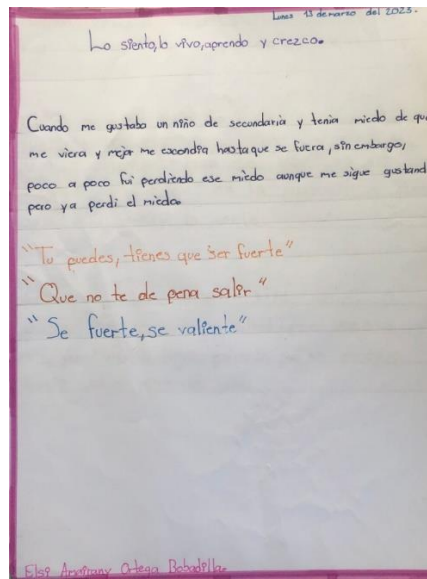 Lunes 13 de marzo del 2023.
Lo siento,lo vivo,aprendo y crezco.
Cuando me gustaba un niño de secundaria y tenia miedo de que
me viera y mejor me escondia hasta que se fuera, sin embargo,
poco a poco fui perdiendo ese miedo aunque me sigue gustand
pero ya perdi el miedo.
"Tu puedes, tienes que ser fuerte"
"Que no te de pena salir"
"Se fuerte, se valiente"
Elsi Ortega Bobadilla.